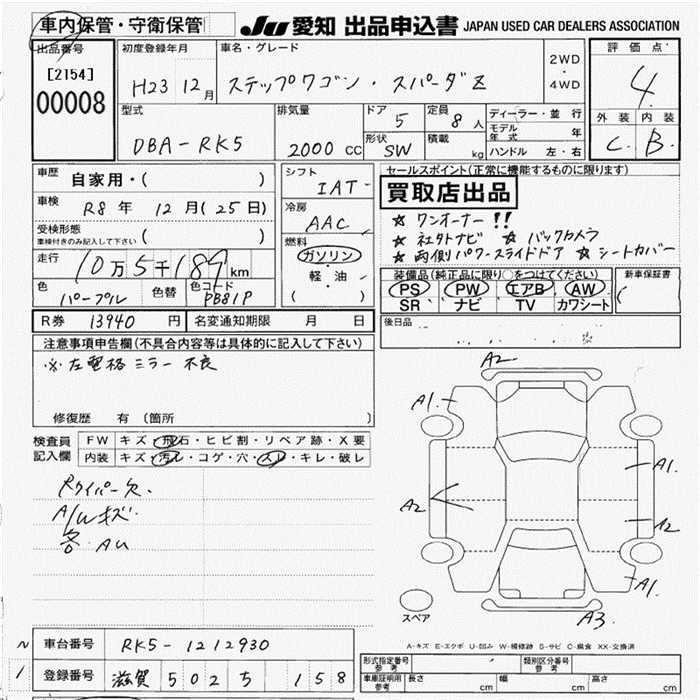 車内保管・守衛保管 JU 愛知 出品申込書 JAPAN USED CAR DEALERS ASSOCIATION
出品番号 初度登録年月 車名・グレード 評価点
[2154] H23 12月 ステップワゴン・スパーダZ 2WD・4WD 4
00008 型式 排気量 ドア 定員 ディーラー・並行 外装 内装
DBA-RK5 2000 CC 5 8人 モデル年式 年 C B
形状 SW 積載 kg ハンドル 左・右
車歴 自家用・( ) シフト IAT セールスポイント(正常に機能するものに限ります)
車検 R8年 12月(25日) 冷房 AAC 買取店出品
受検形態 ( )
車検付きのみ記入して下さい
☆ワンオーナー!!
☆社外ナビ ☆バックカメラ
☆両側パワースライドドア ☆シートカバー
走行 10万5千189km 燃料 ガソリン・軽・油 ( )
色 パープル 色替 色コード PB81P
装備品(純正品に限り○をつけてください) 新車保証書
PS PW エアB AW
SR ナビ TV カワシート
R券 13940円 名変通知期限 月 日 後日品
注意事項申告欄(不具合内容等は具体的に記入して下さい)
※左電格ミラー不良
修復歴 有 (箇所 )
検査員記入欄 FW キズ・飛石・ヒビ割・リペア跡・X要
内装 キズ・汚レ・コゲ・穴・スレ・キレ・破レ
Rワイパー欠.
A/Wキズ.
各.AU
A2
A1
A1
A2
A2
A1
A3
スペア
A-キズ E-エクボ U-凹み W-補修跡 S-サビ C-腐食 XX-交換済
車台番号 RK5-1212930
登録番号 滋賀 502 ち 158
形式指定番号 参考 類別区分番号 参考
車庫証明用 参考 長さ cm 幅 cm 高さ cm